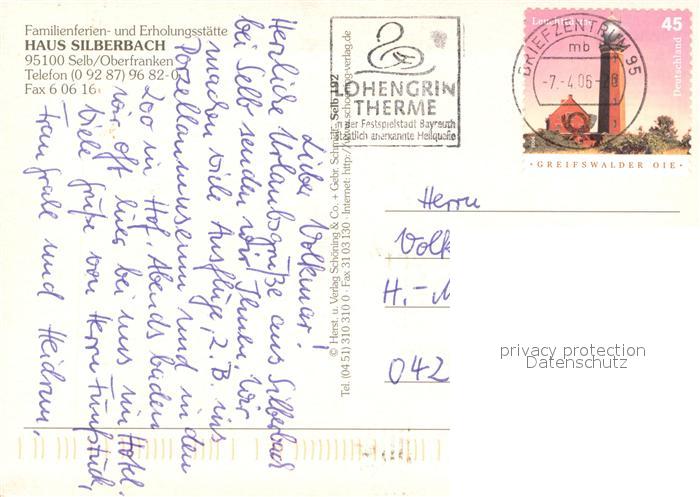 Familienferien- und Erholungsstätte
HAUS SILBERBACH
95100 Selb/Oberfranken
Telefon (0 92 87) 96 82-0
Fax 6 06 16
Lieber Volkmar!
Herzliche Urlaubsgrüße aus Silberbach
bei Selb senden wir Ihnen. Wir
machen viele Ausflüge, z.B. ins
Porzellanmuseum und in den
Zoo in Hof. Abends baden
wir oft hier bei uns im Hotel.
Viele Grüße von Herrn Fünfstück,
Frau und Heidrun.
© Herst. u. Verlag Schöning & Co. + Gebr. Schmidt, Selb 192
Tel. (04 51) 310 310 0 · Fax 31 03 130 · Internet: http://www.schoening-verlag.de
LOHENGRIN
THERME
in der Festspielstadt Bayreuth
staatlich anerkannte Heilquelle
BRIEFZENTRUM 95
mb
-7.-4.06-
Leuchtturm
45
Deutschland
GREIFSWALDER OIE
Herrn
Volk
H.-
042
privacy protection
Datenschutz